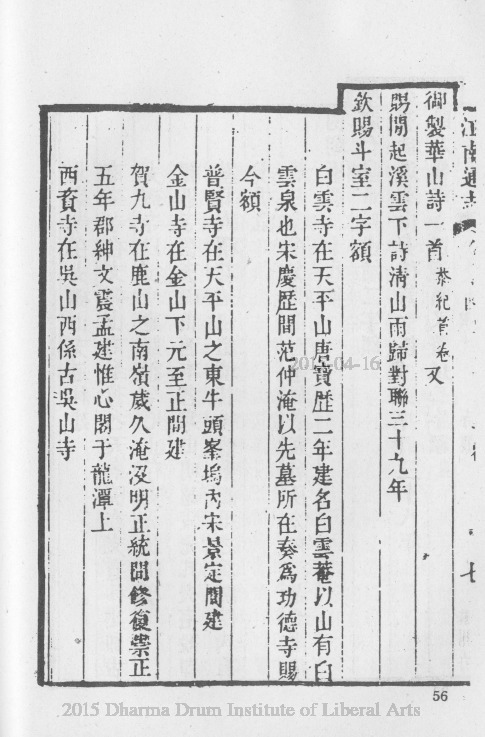 御製華山詩一首恭紀首卷又
賜閒起溪雲下詩淸山雨歸對聯三十九年
欽賜斗室二字額
白雲寺在天平山唐寶歷二年建名白雲菴以山有白
雲泉也宋慶歷間范仲淹以先墓所在奏爲功德寺賜
今額
普賢寺在天平山之東牛頭峯塢內宋景定間建
金山寺在金山下元至正間建
賀九寺在鹿山之南嶺歲久淹沒明正統間修復崇正
五年郡紳文震孟建惟心閣于龍潭上
西資寺在吳山西係古吳山寺
江南通志
七
2015-04-16
56
2015 Dharma Drum Institute of Liberal Arts